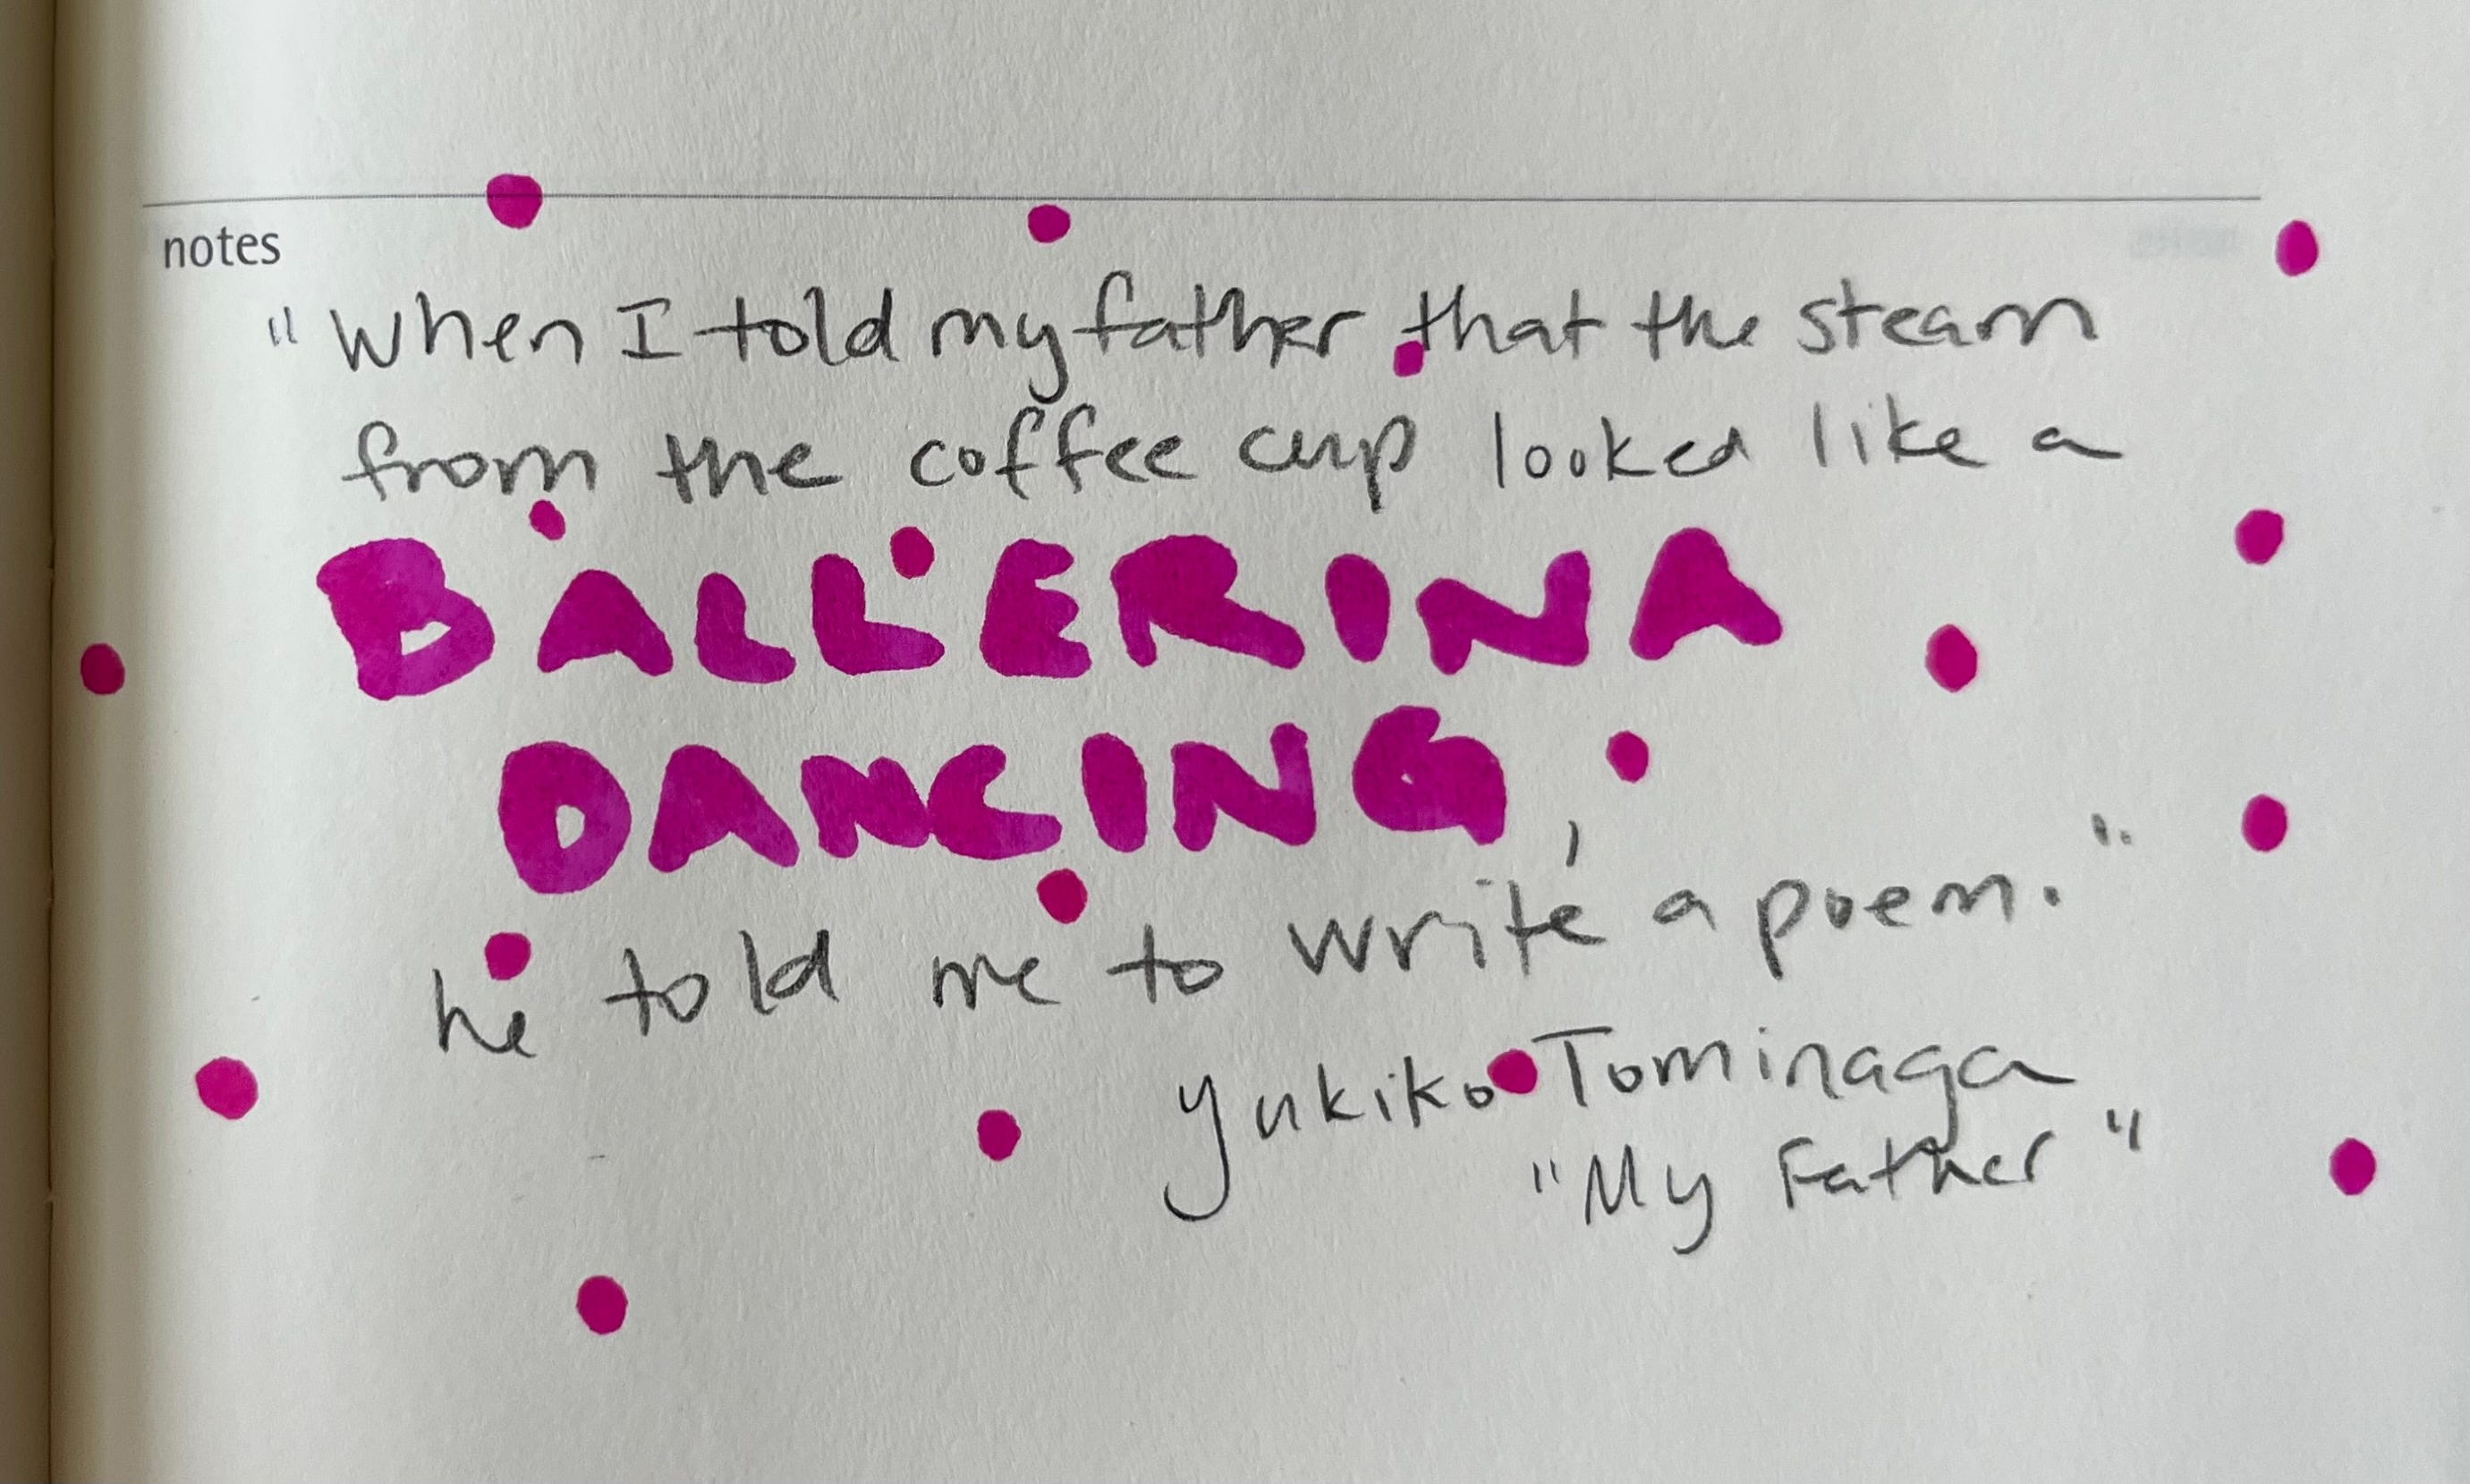 notes
"When I told my father that the steam
from the coffee cup looked like a
BALLERINA
DANCING,
he told me to write a poem."
Yukiko Tominaga
"My Father"